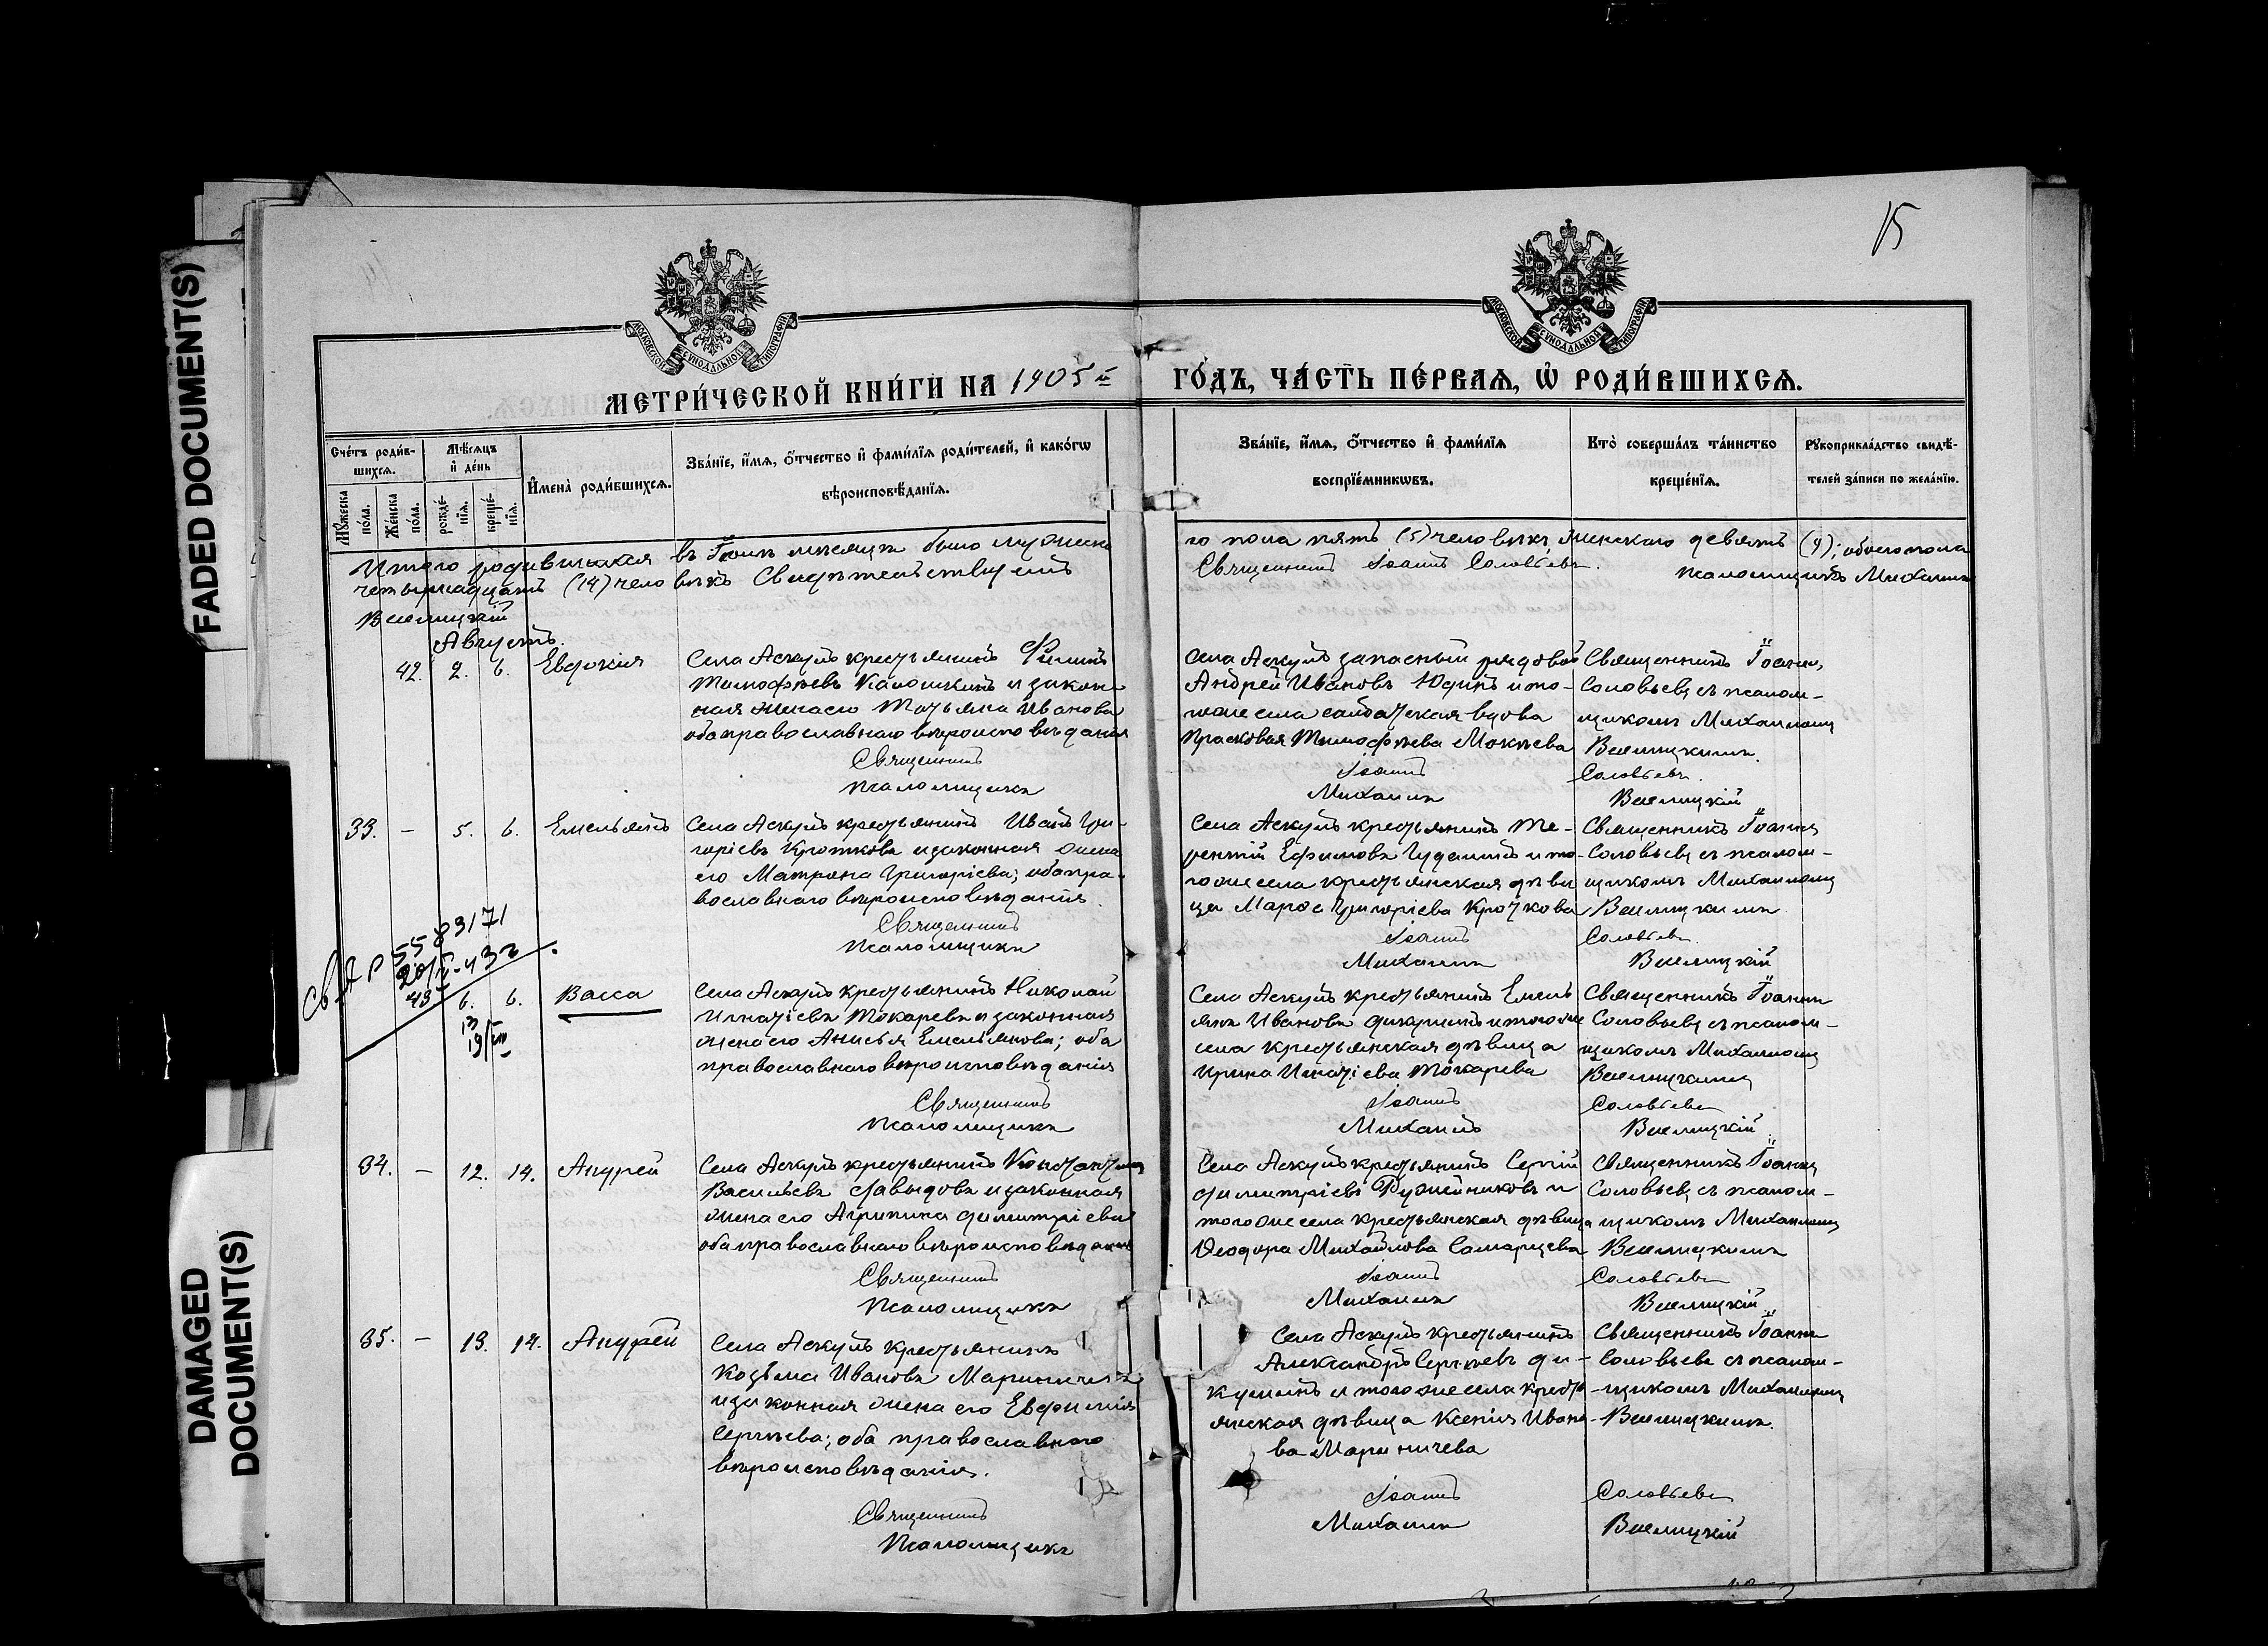 FADED DOCUMENT(S)
DAMAGED
DOCUMENT(S)
15
МОСКОВСКОЙ СУНОДАЛЬНОЙ ТИПОГРАФІИ
МОСКОВСКОЙ СУНОДАЛЬНОЙ ТИПОГРАФІИ
МЕТРИ́ЧЕСКОЙ КНИ́ГИ НА 1905 й ГО́ДЪ, ЧА́СТЬ ПЕ́РВАѦ, Ѿ РОДИ́ВШИХСѦ.
Сче́тъ роди́в-
шихся.
Мꙋжеска по́ла.
Же́нска по́ла.
Мѣ́сяцъ
и҆ де́нь
рожде́-
нїѧ.
креще́-
нїѧ.
И҆мена̀ роди́вшихсѧ.
Зва́нїе, и҆́мѧ, ѻ҆́тчество и҆ фами́лїѧ роди́телей, и҆ како́гѡ
вѣроисповѣ́данїѧ.
Зва́нїе, и҆́мѧ, ѻ҆́тчество и҆ фами́лїѧ
воспрїе́мникѡвъ.
Кто̀ соверша́лъ та́инство
креще́нїѧ.
Рꙋкоприкла́дство свидѣ́-
телей за́писи по жела́нїю.
Итого родившихся въ Іюлѣ мѣсяцѣ было мужеска
го пола пять (5) человѣкъ, женскаго девять (9); обоего пола
четырнадцать (14) человѣкъ Свидѣтельствуемъ
Священникъ Іоаннъ Соловьевъ. Псаломщикъ Михаилъ
Августъ.
42. 2. 6. Евдокія
Села Аскулъ крестьянинъ Филиппъ
Тимофѣевъ Калошкинъ и закон-
ная жена его Татьяна Иванова
оба православнаго вѣроисповѣданія
Священникъ
Псаломщикъ
Села Аскулъ запасный рядовой
Андрей Ивановъ Юдинъ и то-
гоже села солдатская вдова
Прасковья Тимофѣева Мокѣева
Іоаннъ
Михаилъ
Священникъ Іоаннъ
Соловьевъ съ псалом-
щикомъ Михаиломъ
Соловьевъ.
33. — 5. 6. Емельянъ
Села Аскулъ крестьянинъ Иванъ Гри-
горіевъ Кротковъ и законная жена
его Матрона Григоріева; оба пра-
вославнаго вѣроисповѣданія.
Священникъ
Псаломщикъ
Села Аскулъ крестьянинъ Те-
рентій Ефимовъ и то-
гоже села крестьянская дѣви
ца Григоріева Кроткова
Іоаннъ
Михаилъ
Священникъ Іоаннъ
Соловьевъ съ псалом-
щикомъ Михаиломъ
Соловьевъ.
83171
43 6. 6. Васса
13
19/III
Села Аскулъ крестьянинъ Николай
Игнатіевъ Токаревъ и законная
жена его Анисья Емельянова; оба
православнаго вѣроисповѣданія
Священникъ
Псаломщикъ
Села Аскулъ крестьянинъ Емель
янъ Ивановъ Дикушинъ и того же
села крестьянская дѣвица
Ирина Игнатіева Токарева
Іоаннъ
Михаилъ
Священникъ Іоаннъ
Соловьевъ съ псалом-
щикомъ Михаиломъ
Соловьевъ
34. — 12. 14. Андрей
Села Аскулъ крестьянинъ Константинъ
Васильевъ Давыдовъ и законная
жена его Агрипина Димитріева
оба православнаго вѣроисповѣданія
Священникъ
Псаломщикъ
Села Аскулъ крестьянинъ Сергій
Димитріевъ Ружейниковъ и
того же села крестьянская дѣвица
Ѳеодора Михайлова Самарцева
Іоаннъ
Михаилъ
Священникъ Іоаннъ
Соловьевъ съ псалом-
щикомъ Михаиломъ
Соловьевъ
35. — 13. 14. Андрей
Села Аскулъ крестьянинъ
Козьма Ивановъ Мариничевъ
и законная жена его Евфимія
Сергѣева; оба православнаго
вѣроисповѣданія.
Священникъ
Псаломщикъ
Села Аскулъ крестьянинъ
Александръ Сергѣевъ Ди-
кушинъ и того же села кресть
янская дѣвица Ксенія Ивано-
ва Мариничева
Іоаннъ
Михаилъ
Священникъ Іоаннъ
Соловьевъ съ псалом-
щикомъ Михаиломъ
Соловьевъ